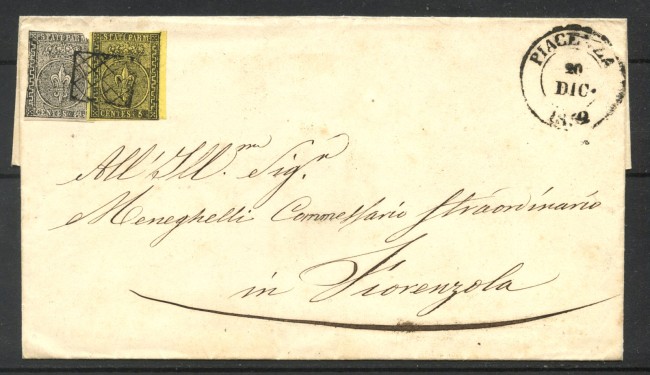 STATI PARM. STATI PARM.
CENTES. CENTES. 5
PIACENZA
20
DIC.
1852
All' Ill.mo Sig.r
Meneghelli Commessario Straordinario
in Fiorenzola